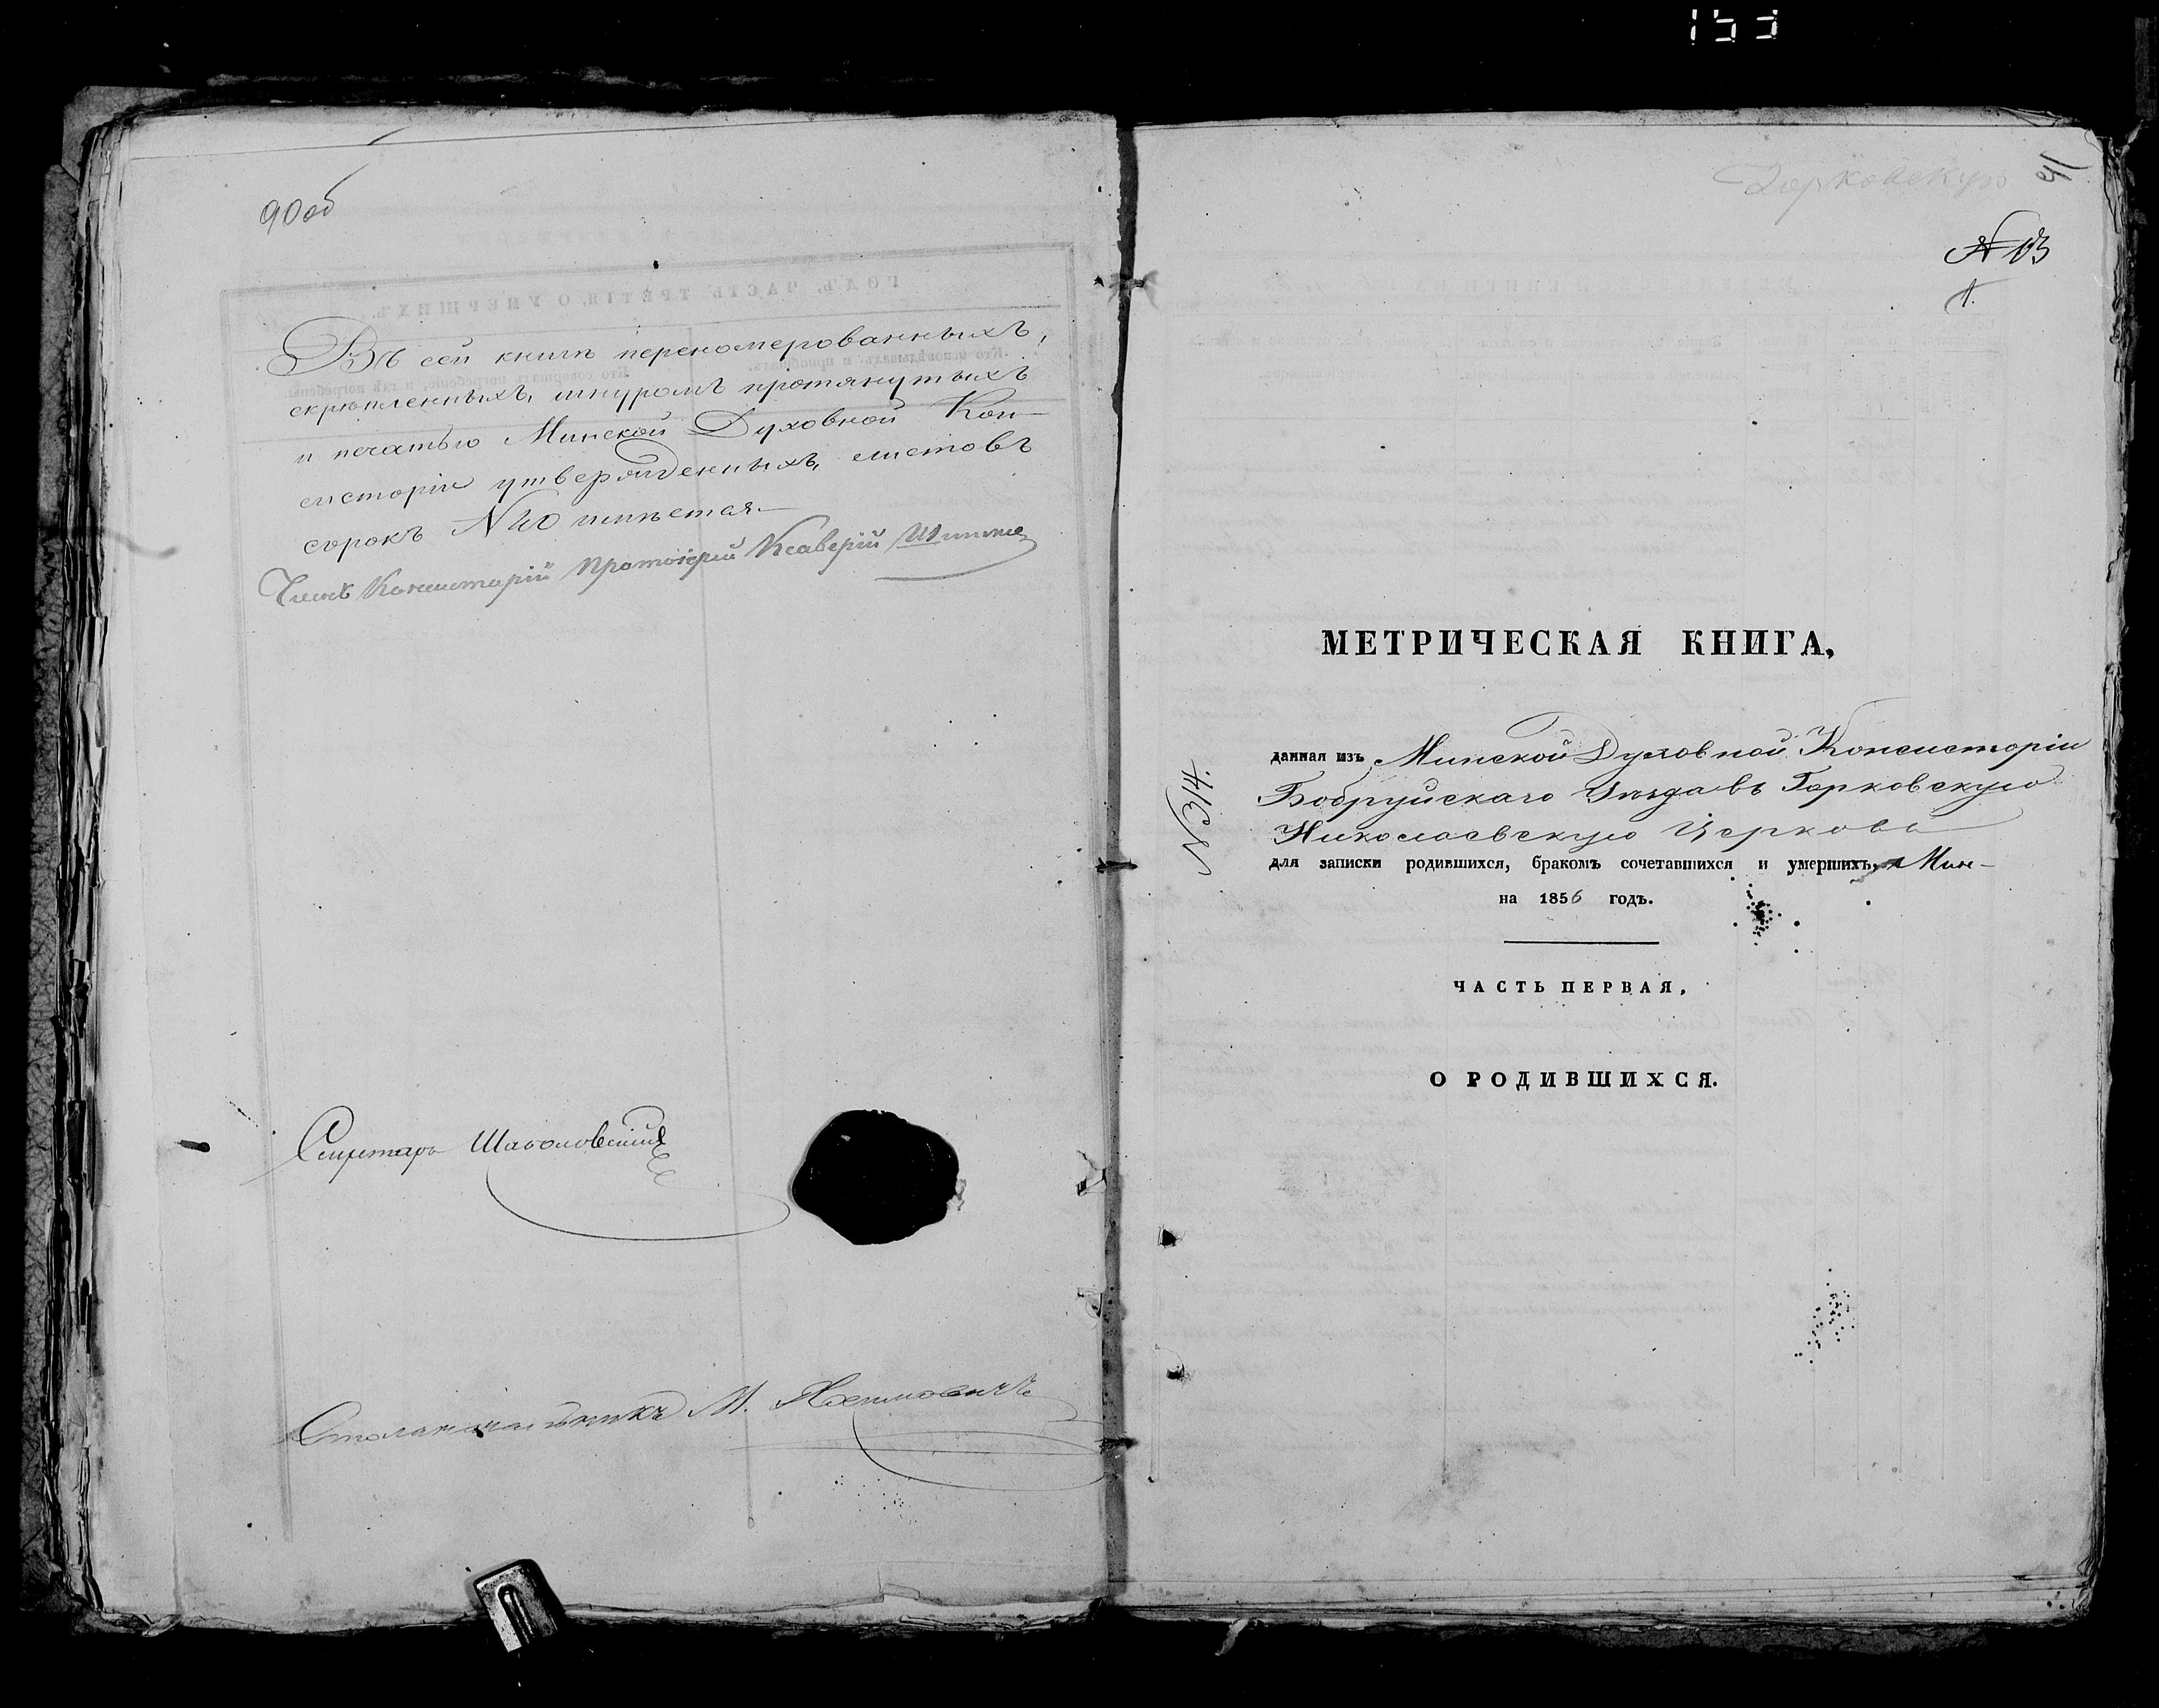 153
90 об
Въ сей книгѣ перекомерованныхъ,
скрѣпленныхъ, шнуромъ протянутыхъ
и печатью Минской Духовной Кон-
систоріи утвержденныхъ, листовъ
сорокъ № 40 имѣется.
Членъ Консисторіи Протоіерей Ксаверій
Секретарь
Столоначальникъ М.
91
№ 13
1.
МЕТРИЧЕСКАЯ КНИГА,
данная изъ Минской Духовной Консисторіи
Бобруйскаго Уѣзда въ Горковскую
Николаевскую Церковь
для записки родившихся, бракомъ сочетавшихся и умершихъ,
на 1856 годъ.
ЧАСТЬ ПЕРВАЯ,
О РОДИВШИХСЯ.
№ 314